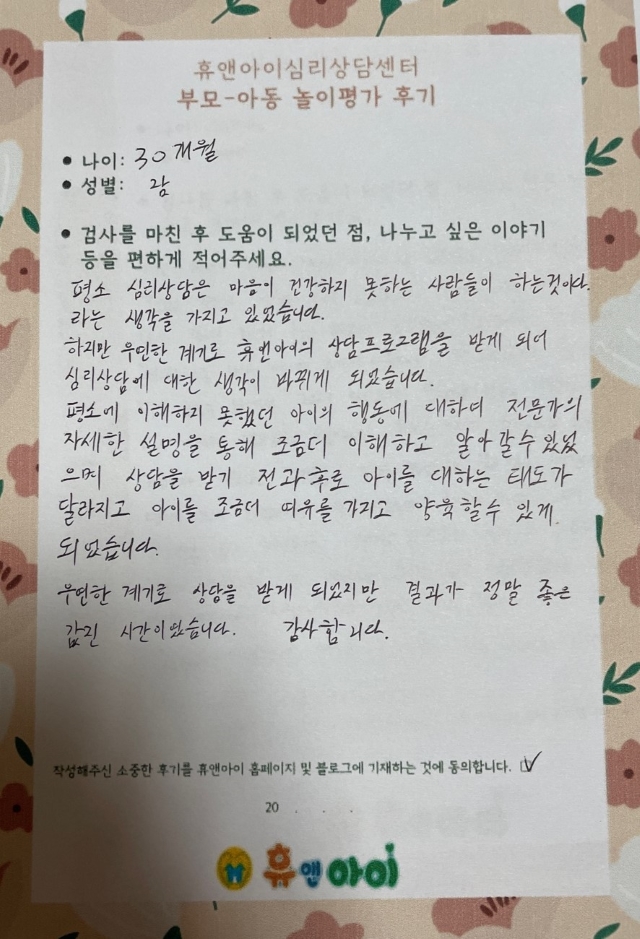 휴앤아이심리상담센터
부모-아동 놀이평가 후기
• 나이: 30개월
• 성별: 남
• 검사를 마친 후 도움이 되었던 점, 나누고 싶은 이야기
등을 편하게 적어주세요.
평소 심리상담은 마음이 건강하지 못하는 사람들이 하는것이다.
라는 생각을 가지고 있었습니다.
하지만 우연한 계기로 휴앤아이의 상담프로그램을 받게 되어
심리상담에 대한 생각이 바뀌게 되었습니다.
평소에 이해하지 못했던 아이의 행동에 대하여 전문가의
자세한 설명을 통해 조금더 이해하고 알아갈수있었
으며 상담을 받기 전과후로 아이를 대하는 태도가
달라지고 아이를 조금더 여유를 가지고 양육할수 있게
되었습니다.
우연한 계기로 상담을 받게 되었지만 결과가 정말 좋은
값진 시간이였습니다. 감사합니다.
작성해주신 소중한 후기를 휴앤아이 홈페이지 및 블로그에 기재하는 것에 동의합니다. ☑
20 . . .
휴앤아이